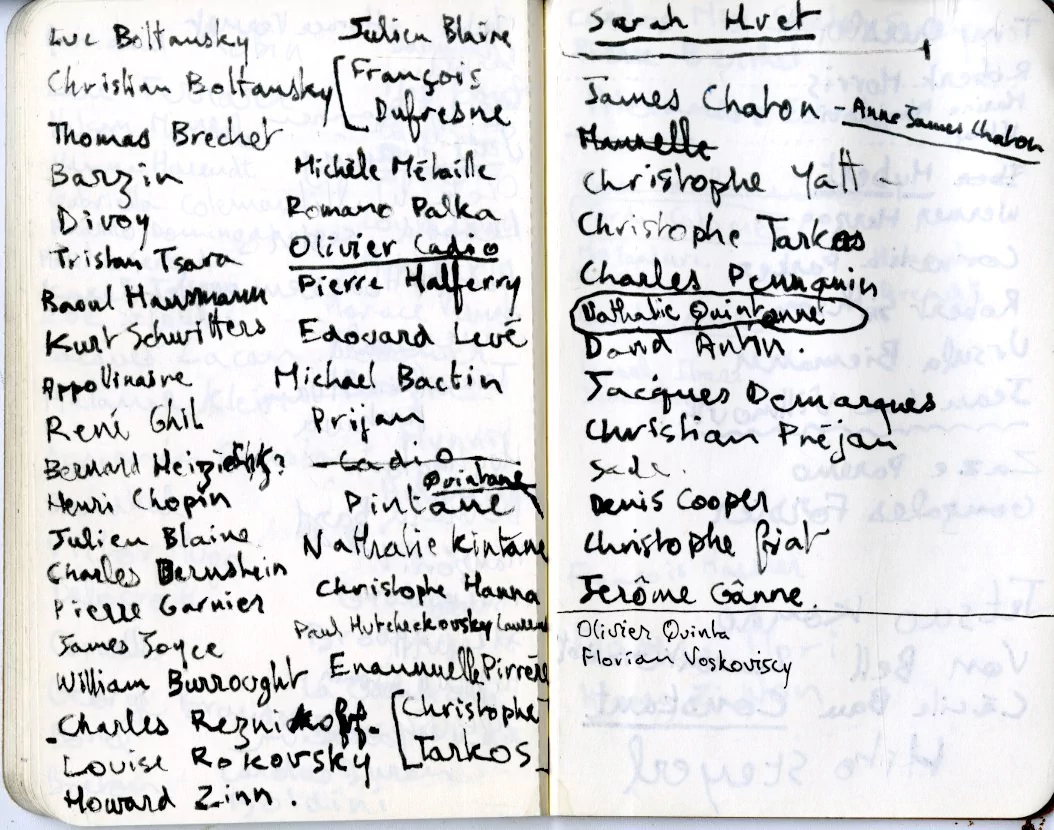 Luc Boltansky
Christian Boltansky
Thomas Brechet
Barzin
Divoy
Tristan Tsara
Raoul Hausmann
Kurt Schwitters
Appolinaire
René Ghil
Bernard
Henri Chopin
Julien Blaine
Charles Bernshein
Pierre Garnier
James Joyce
William Burrought
Charles Reznikoff.
Louise Rokovsky
Howard Zinn.
Julien Blaine
François
Dufresne
Michèle Métaille
Romano Palka
Olivier Cadio
Pierre Halferry
Edouard Levé
Michael Bactin
Prijan
Cadio
Quintane
Pintane
Nathalie Kintane
Christophe Hanna
Paul
Enanuelle Pirrère
Christophe
Tarkos
Sarah Hvet
James Chaton - Anne-James Chaton
Christophe
Christophe Tarkos
Charles Pennquin
Nathalie Quintanne
David Antin.
Jacques Demarques
Christian Préjan
Sade.
Denis Cooper
Christophe fiat
Jerôme Gânne.
Olivier Quinta
Florian Voskoviscy